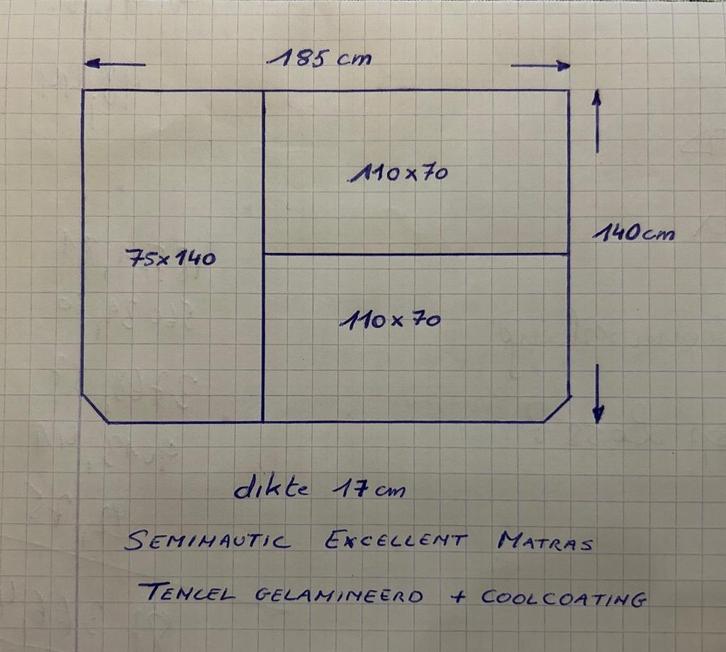 185 cm
110x70
140cm
75x140
110x70
dikte 17cm
SEMINAUTIC EXCELLENT MATRAS
TENCEL GELAMINEERD + COOLCOATING